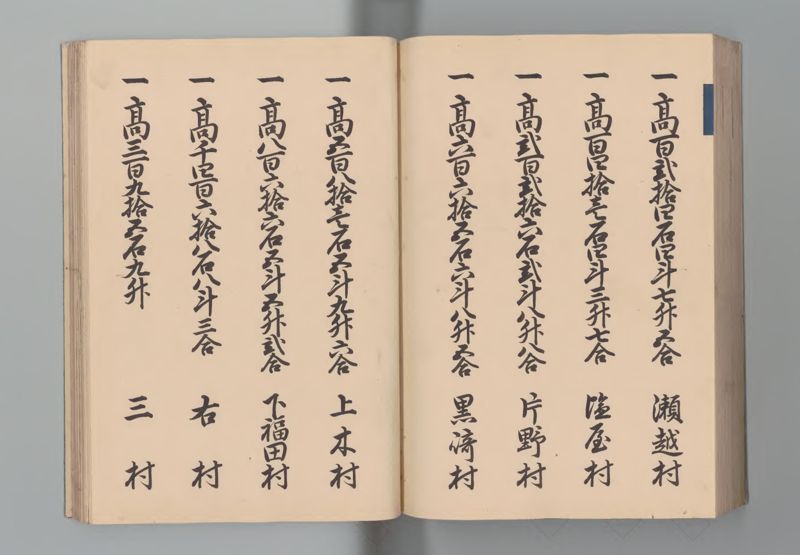 一髙百弐拾四石四斗七升五合 瀬越村
一髙百四拾壱石四斗三升七合 塩屋村
一髙弐百弐拾六石弐斗八升八合 片野村
一髙六百六拾五石六斗八升五合 黒崎村
一髙五百八拾壱石五斗九升六合 上木村
一髙八百六拾六石五斗五升弐合 下福田村
一髙千四百六拾八石八斗三合 右村
一髙三百九拾五石九升 三村